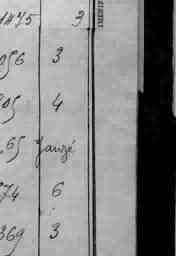 1475 3
056 3
205 4
65 Jauzé
74 6
369 3